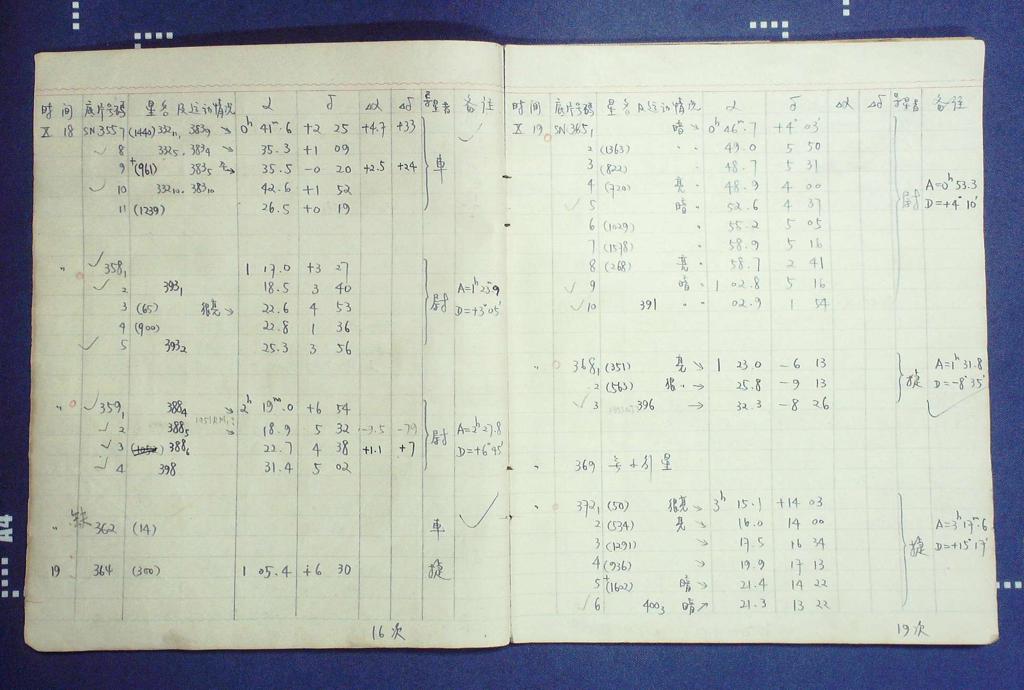 时间 底片号码 星名及运动情况 α δ Δα Δδ 备注
X 18 SN3557 (1440) 332₁₁, 383₉ → 0ʰ 41ᵐ.6 +2 25 +4.7 +33
8 332₅, 383₄ → 35.3 +1 09 車
9 +(961) 383₅ → 35.5 -0 20 +2.5 +24
10 332₁₀, 383₁₀ 42.6 +1 52
11 (1239) 26.5 +0 19
" 358₁ 1 17.0 +3 27
2 393₁ 18.5 3 40 A=1ʰ 25ᵐ9
3 (65) 很亮 → 22.6 4 53 尉 D=+3°05′
4 (900) 22.8 1 36
5 393₂ 25.3 3 56
" 359₁ 388₄ → 2ʰ 19ᵐ.0 +6 54
2 388₅ → 18.9 5 32 -79 尉 A=2ʰ27.8
3 388₆ 22.7 4 38 +1.1 +7
4 398 31.4 5 02
" 362 (14) 車
19 364 (300) 1 05.4 +6 30 捷
16次
时间 底片号码 星名及运动情况 α δ Δα Δδ 备注
X 19 SN365₁ 暗 → 0ʰ 46ᵐ.7 +4° 03′
2 (1363) " 49.0 5 50
3 (822) " 48.7 5 31
4 (720) 亮 " 48.9 4 00 尉 A=0ʰ 53.3
5 暗 " 52.6 4 37 D=+4° 10′
6 (1029) " 55.2 5 05
7 (1578) " 58.9 5 16
8 (268) 亮 " 58.7 2 41
9 暗 " 1 02.8 5 16
10 391 " " 02.9 1 54
" 368₁ (351) 亮 → 1 23.0 -6 13 A=1ʰ 31.8
2 (563) 很 " 25.8 -9 13 捷 D=-8° 35′
3 396 → 32.3 -8 26
" 369 星
" 372₁ (50) 很亮 3ʰ 15.1 +14 03
2 (534) 亮 → 16.0 14 00 A=3ʰ17ᵐ.6
3 (1291) → 17.5 16 34 捷 D=+15°17′
4 (936) → 19.9 17 13
5 +(1602) 暗 → 21.4 14 22
6 400₃ 暗 ↗ 21.3 13 22
19次